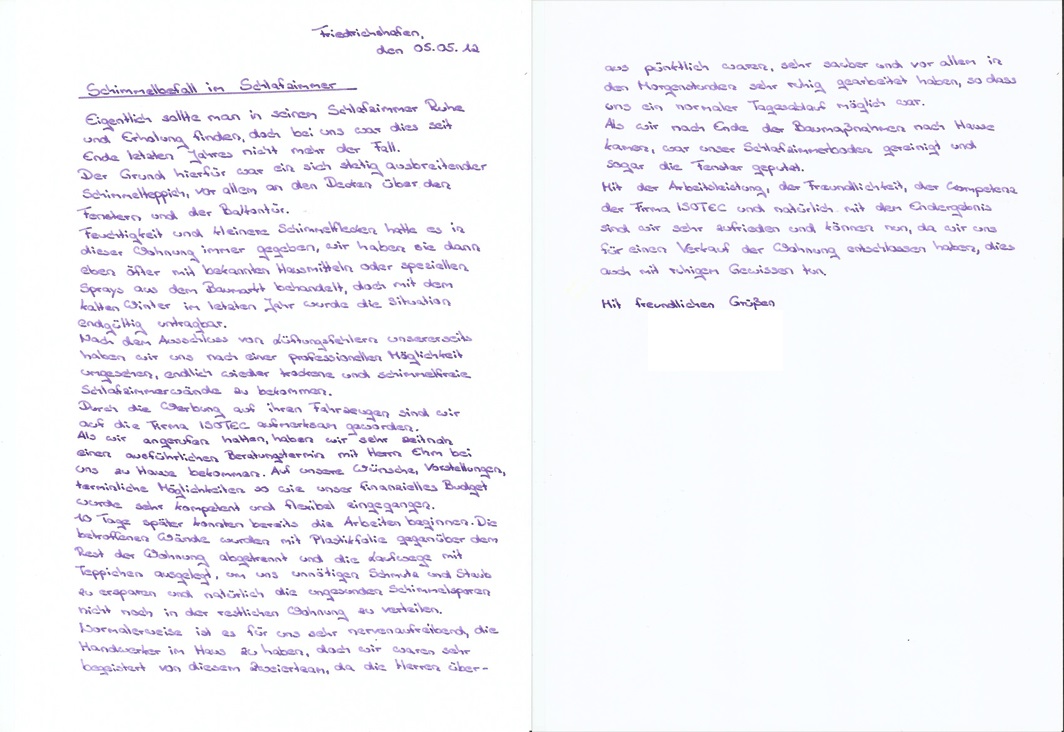 Friedrichshafen,
den 05.05.12
Schimmelbefall im Schlafzimmer
Eigentlich sollte man in seinem Schlafzimmer Ruhe
und Erholung finden, doch bei uns war dies seit
Ende letzten Jahres nicht mehr der Fall.
Der Grund hierfür war ein sich stetig ausbreitender
Schimmelteppich, vor allem an den Decken über den
Fenstern und der Balkontür.
Feuchtigkeit und kleinere Schimmelflecken hatte es in
dieser Wohnung immer gegeben, wir haben sie dann
eben öfter mit bekannten Hausmitteln oder speziellen
Sprays aus dem Baumarkt behandelt, doch mit dem
kalten Winter im letzten Jahr wurde die Situation
endgültig untragbar.
Nach dem Ausschluss von Lüftungsfehlern unsererseits
haben wir uns nach einer professionellen Möglichkeit
umgesehen, endlich wieder trockene und schimmelfreie
Schlafzimmerwände zu bekommen.
Durch die Werbung auf ihren Fahrzeugen sind wir
auf die Firma ISOTEC aufmerksam geworden.
Als wir angerufen hatten, haben wir sehr zeitnah
einen ausführlichen Beratungstermin mit Herrn Ehm bei
uns zu Hause bekommen. Auf unsere Wünsche, Vorstellungen,
terminliche Möglichkeiten so wie unser finanzielles Budget
wurde sehr kompetent und flexibel eingegangen.
10 Tage später konnten bereits die Arbeiten beginnen. Die
betroffenen Wände wurden mit Plastikfolie gegenüber dem
Rest der Wohnung abgetrennt und die Laufwege mit
Teppichen ausgelegt, um uns unnötigen Schmutz und Staub
zu ersparen und natürlich die ungesunden Schimmelsporen
nicht noch in der restlichen Wohnung zu verteilen.
Normalerweise ist es für uns sehr nervenaufreibend, die
Handwerker im Haus zu haben, doch wir waren sehr
begeistert von diesem Zweierteam, da die Herren über-
aus pünktlich waren, sehr sauber und vor allem in
den Morgenstunden sehr ruhig gearbeitet haben, so dass
uns ein normaler Tagesablauf möglich war.
Als wir nach Ende der Baumaßnahmen nach Hause
kamen, war unser Schlafzimmerboden gereinigt und
sogar die Fenster geputzt.
Mit der Arbeitsleistung, der Freundlichkeit, der Competenz
der Firma ISOTEC und natürlich mit dem Endergebnis
sind wir sehr zufrieden und können nun, da wir uns
für einen Verkauf der Wohnung entschlossen haben, dies
auch mit ruhigem Gewissen tun.
Mit freundlichen Grüßen